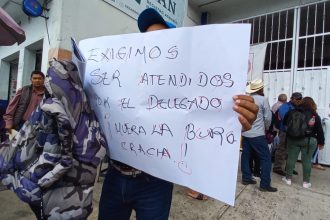 AN
EXIGIMOS
SER ATENDIDOS
POR EL DELEGADO
¡MUERA LA BURO
CRACIA!!